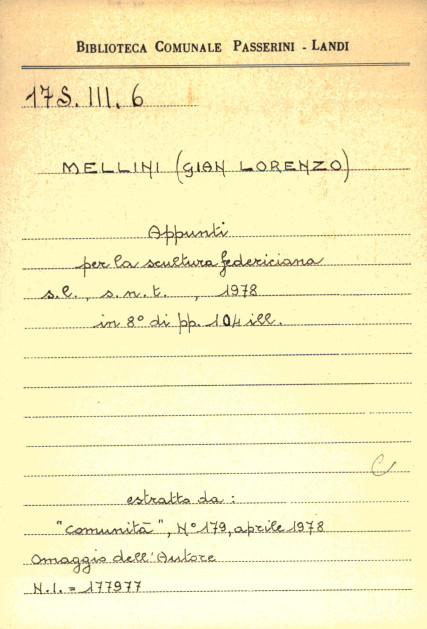 BIBLIOTECA COMUNALE PASSERINI - LANDI
17S. III. 6
MELLINI (GIAN LORENZO)
Appunti
per la scultura federiciana
s.l., s.n.t. , 1978
in 8° di pp. 104 ill.
C
estratto da :
"Comunità", N° 179, aprile 1978
Omaggio dell'Autore
N.I. = 177977